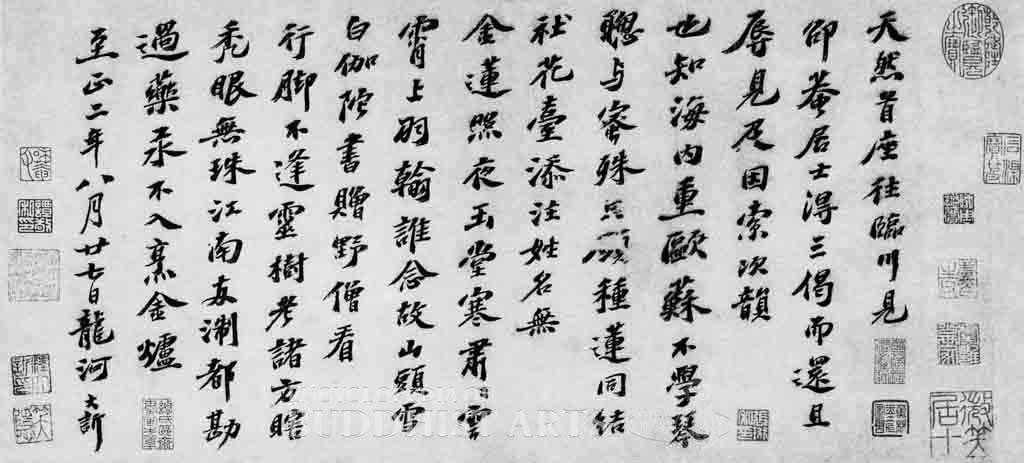 天然首座往臨川見
邵菴居士得三偈而還且
辱見及因索次韻
也知海内重歐蘇不學琴
聰与蜜殊種蓮同結
社花臺添注姓名無
金蓮照夜玉堂寒肅雲
霄上羽翰誰念故山頭雪
白伽陁書贈野僧看
行脚不逢靈樹老諸方瞎
秃眼無珠江南淛都勘
過藥汞不入烹金爐
至正二年八月廿七日龍河大訢
BUDDHIST ART